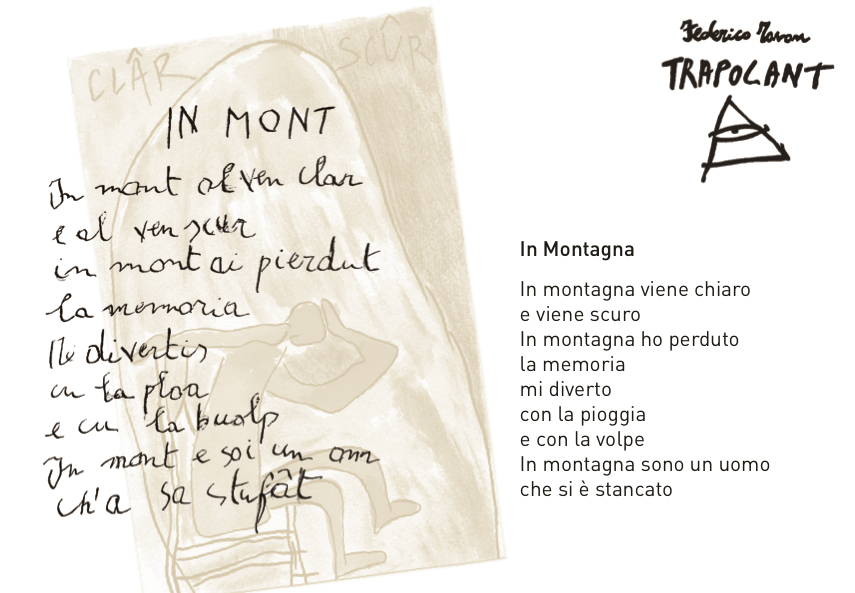 CLÂR
SCÛR
IN MONT
In mont al ven clar
e al ven scur
in mont ai pierdut
la memoria
Me divertis
cu la ploa
e cu la buolp
In mont e soi un om
ch'a sa stufât
Federico Tavan
TRAPOLANT
In Montagna
In montagna viene chiaro
e viene scuro
In montagna ho perduto
la memoria
mi diverto
con la pioggia
e con la volpe
In montagna sono un uomo
che si è stancato